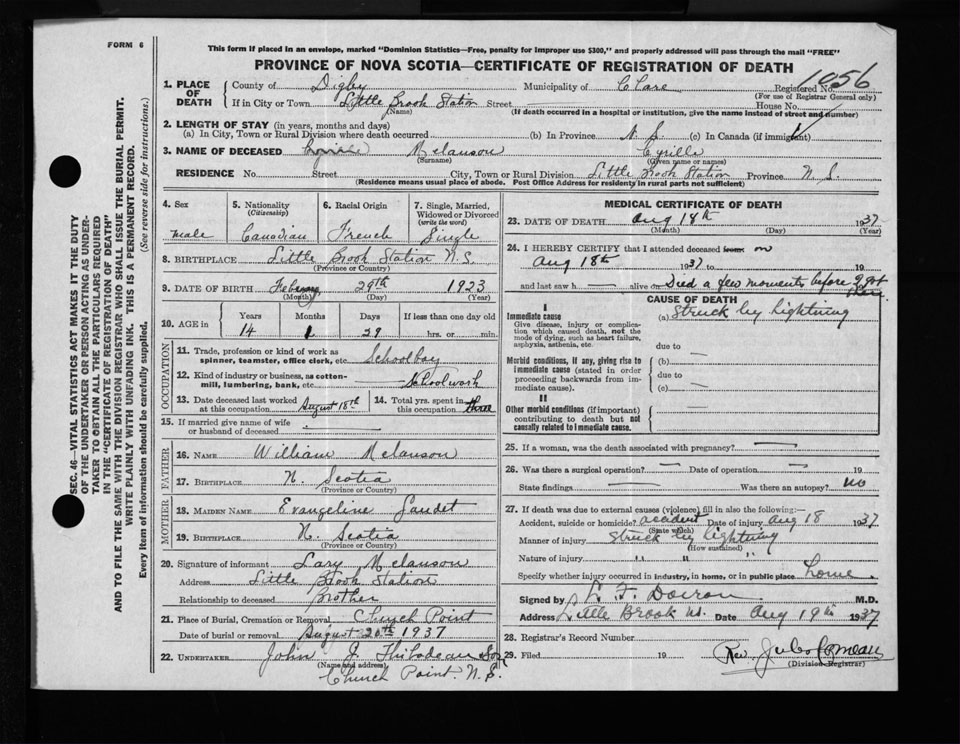 FORM 6
This form if placed in an envelope, marked "Dominion Statistics—Free, penalty for improper use $300," and properly addressed will pass through the mail "FREE"
PROVINCE OF NOVA SCOTIA—CERTIFICATE OF REGISTRATION OF DEATH
1. PLACE OF DEATH County of Digby Municipality of Clare Registered No. 1056
(For use of Registrar General only)
If in City or Town Little Brook Station Street House No.
(Name) (If death occurred in a hospital or institution, give the name instead of street and number)
2. LENGTH OF STAY (in years, months and days)
(a) In City, Town or Rural Division where death occurred (b) In Province N. S. (c) In Canada (if immigrant)
3. NAME OF DECEASED Melanson Cyrille
(Surname) (Given name or names)
RESIDENCE No. Street City, Town or Rural Division Little Brook Station Province N. S.
(Residence means usual place of abode. Post Office Address for residents in rural parts not sufficient)
4. Sex 5. Nationality (Citizenship) 6. Racial Origin 7. Single, Married, Widowed or Divorced (write the word)
male Canadian French Single
8. BIRTHPLACE Little Brook Station N.S.
(Province or Country)
9. DATE OF BIRTH February 29th 1923
(Month) (Day) (Year)
10. AGE in Years Months Days If less than one day old
14 29 hrs. or min.
OCCUPATION
11. Trade, profession or kind of work as spinner, teamster, office clerk, etc. Schoolboy
12. Kind of industry or business, as cotton-mill, lumbering, bank, etc. Schoolwork
13. Date deceased last worked at this occupation August 18th 14. Total yrs. spent in this occupation three
15. If married give name of wife or husband of deceased
FATHER
16. NAME William Melanson
17. BIRTHPLACE N. Scotia
(Province or Country)
MOTHER
18. MAIDEN NAME Evangeline Gaudet
19. BIRTHPLACE N. Scotia
(Province or Country)
20. Signature of informant Lary Melanson
Address Little Brook Station
Relationship to deceased Brother
21. Place of Burial, Cremation or Removal Church Point
Date of burial or removal August 20th 1937
22. UNDERTAKER John J. Thibodeau Son
(Name and address)
Church Point. N. S.
MEDICAL CERTIFICATE OF DEATH
23. DATE OF DEATH Aug 18th 1937
(Month) (Day) (Year)
24. I HEREBY CERTIFY that I attended deceased from on
Aug 18th 1937 to 19
and last saw h alive on Died a few moments before I got there
CAUSE OF DEATH
I
Immediate cause (a) Struck by lightning
Give disease, injury or complication which caused death, not the mode of dying, such as heart failure, asphyxia, asthenia, etc.
due to
Morbid conditions, if any, giving rise to immediate cause (stated in order proceeding backwards from immediate cause). (b)
due to
(c)
II
Other morbid conditions (if important) contributing to death but not causally related to immediate cause.
25. If a woman, was the death associated with pregnancy?
26. Was there a surgical operation? Date of operation 19
State findings Was there an autopsy? no
27. If death was due to external causes (violence) fill in also the following:—
Accident, suicide or homicide? accident Date of injury Aug 18 1937
(State which)
Manner of injury Struck by lightning
(How sustained)
Nature of injury " " "
Specify whether injury occurred in industry, in home, or in public place home.
Signed by L. F. Doiron M.D.
Address Little Brook Date Aug 19th 1937
28. Registrar's Record Number
29. Filed 19 Rev. Jules Comeau
(Division Registrar)
SEC. 46—VITAL STATISTICS ACT MAKES IT THE DUTY
OF THE UNDERTAKER OR PERSON ACTING AS UNDER-
TAKER TO OBTAIN ALL THE PARTICULARS REQUIRED
IN THE "CERTIFICATE OF REGISTRATION OF DEATH"
AND TO FILE THE SAME WITH THE DIVISION REGISTRAR WHO SHALL ISSUE THE BURIAL PERMIT.
WRITE PLAINLY WITH UNFADING INK. THIS IS A PERMANENT RECORD.
Every item of information should be carefully supplied. (See reverse side for instructions.)